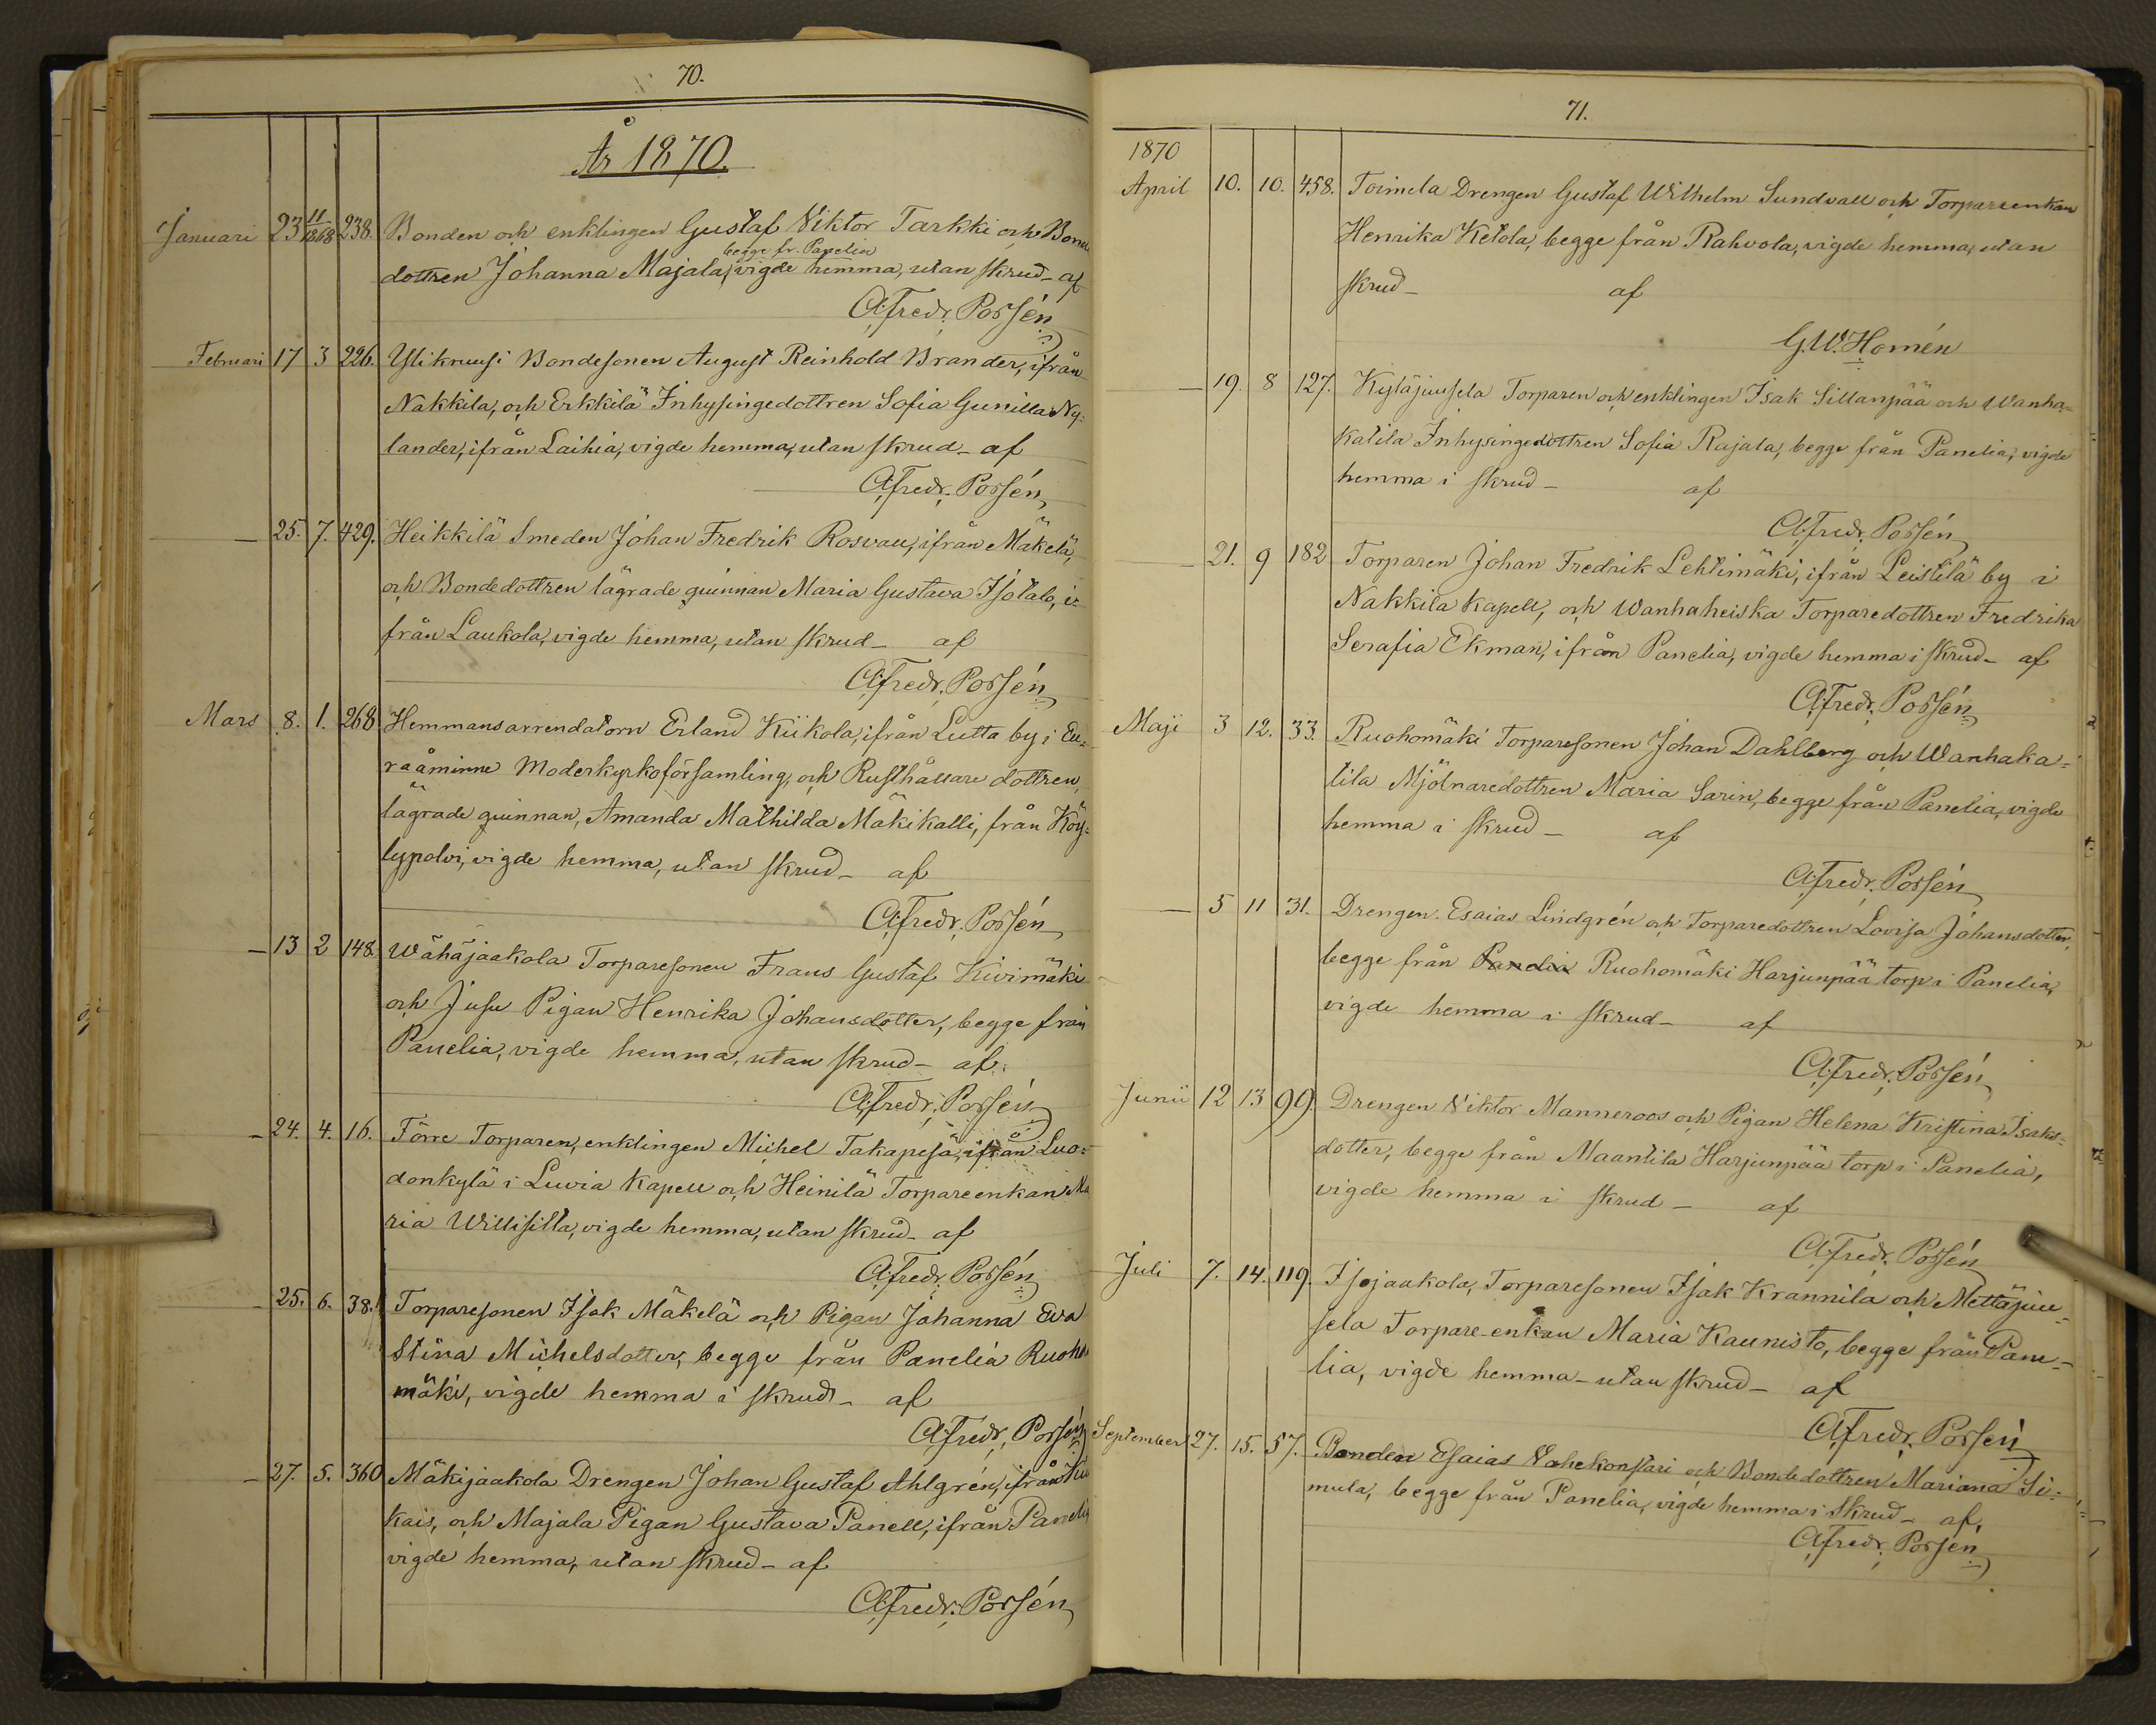 70.
År 1870.
Januari 23 11/1868 238. Bonden och enklingen Gustaf Viktor Tarkki och Bonde
begge fr. Panelia
dottren Johanna Majala, vigde hemma, utan skrud_ af
A: Fredr. Porsén
Februari 17 3 226. Ylikruusi Bondesonen August Reinhold Brander, ifrån
Nakkila, och Erkkilä Inhysingedottren Sofia Gunilla Ny-
lander, ifrån Laihia, vigde hemma, utan skrud_ af
A: Fredr. Porsén
_ 25. 7. 429. Heikkilä Smeden Johan Fredrik Rosvall, ifrån Mäkelä,
och Bondedottren lägrade quinnan Maria Gustava Isotalo, i-
från Laukola, vigde hemma, utan skrud_ af
A: Fredr. Porsén
Mars 8. 1. 268 Hemmansarrendatorn Erland Kiikola, ifrån Lutta by i Eu-
raåminne Moderkyrkoförsamling, och Rusthållare dottren,
lägrade quinnan, Amanda Mathilda Mäkikalli, från Köy-
lypolvi, vigde hemma, utan skrud_ af
A: Fredr. Porsén
_ 13 2 148. Wähäjaakola Torparesonen Frans Gustaf Kivimäki
och Jusu Pigan Henrika Johansdotter, begge från
Panelia, vigde hemma, utan skrud_ af
A: Fredr. Porsén
_ 24. 4. 16. Förre Torparen, enklingen Michel Takapesä, ifrån Luo-
donkylä i Luvia Kapell och Heinilä Torpareenkan Ma
ria Willisilta, vigde hemma, utan skrud_ af
A: Fredr. Porsén
_ 25. 6. 38. Torparesonen Isak Mäkelä och Pigan Johanna Eva
Stina Michelsdotter, begge från Panelia Ruoho
mäki, vigde hemma i skrud_ af
A: Fredr. Porsén
_ 27. 5. 360 Mäkijaakola Drengen Johan Gustaf Ahlgrén, ifrån Kiu
kais, och Majala Pigan Gustava Panell, ifrån Panelia
vigde hemma, utan skrud_ af
A: Fredr. Porsén
71.
1870
April 10. 10. 458. Toimela Drengen Gustaf Wilhelm Sundvall och Torpareenkan
Henrika Ketola, begge från Rahvola, vigde hemma, utan
skrud_ af
G.W. Homén
_ 19. 8 127. Kyläjuusela Torparen och enklingen Isak Sillanpää och Wanha-
katila Inhysingedottren Sofia Rajala, begge från Panelia, vigde
hemma i skrud_ af
A: Fredr. Porsén
_ 21. 9 182 Torparen Johan Fredrik Lehtimäki, ifrån Leistilä by i
Nakkila Kapell, och Wanhaheiska Torparedottren Fredrika
Serafia Ekman, ifrån Panelia, vigde hemma i skrud_ af
A: Fredr. Porsén
Maji 3 12. 33. Ruohomäki Torparesonen Johan Dahlberg och Wanhaka-
tila Mjölnaredottren Maria Sarin, begge från Panelia, vigde
hemma i skrud_ af
A: Fredr. Porsén
_ 5 11 31. Drengen Esaias Lindgrén och Torparedottren Lovisa Johansdotter,
begge från Panelia Ruohomäki Harjunpää torp i Panelia,
vigde hemma i skrud_ af
A: Fredr. Porsén
Junii 12 13 99. Drengen Viktor Manneroos och Pigan Helena Kristina Isaks-
dotter, begge från Maantila Harjunpää torp i Panelia,
vigde hemma i skrud_ af
A: Fredr. Porsén
Juli 7. 14. 119. Isojaakola, Torparesonen Isak Krannila och Mettäjuu-
sela Torpare-enkan Maria Kaunisto, begge från Pane-
lia, vigde hemma_ utan skrud_ af
A: Fredr. Porsén
September 27. 15. 57. Bonden Esaias Vahekonstari och Bondedottren Mariana Si-
mula, begge från Panelia, vigde hemma i skrud_ af
A: Fredr. Porsén